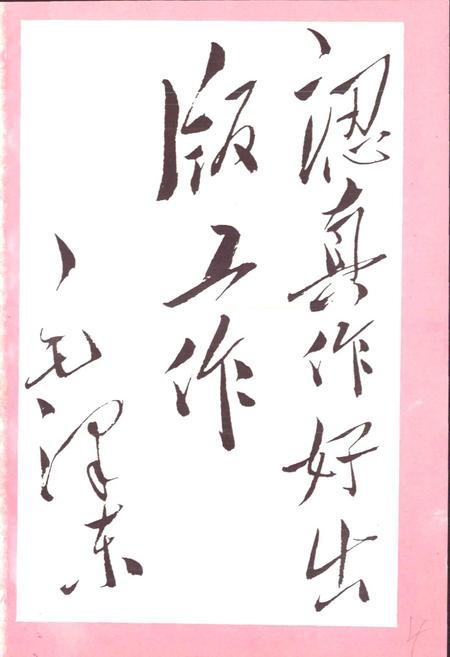 認真作好出
版工作
毛澤东
4